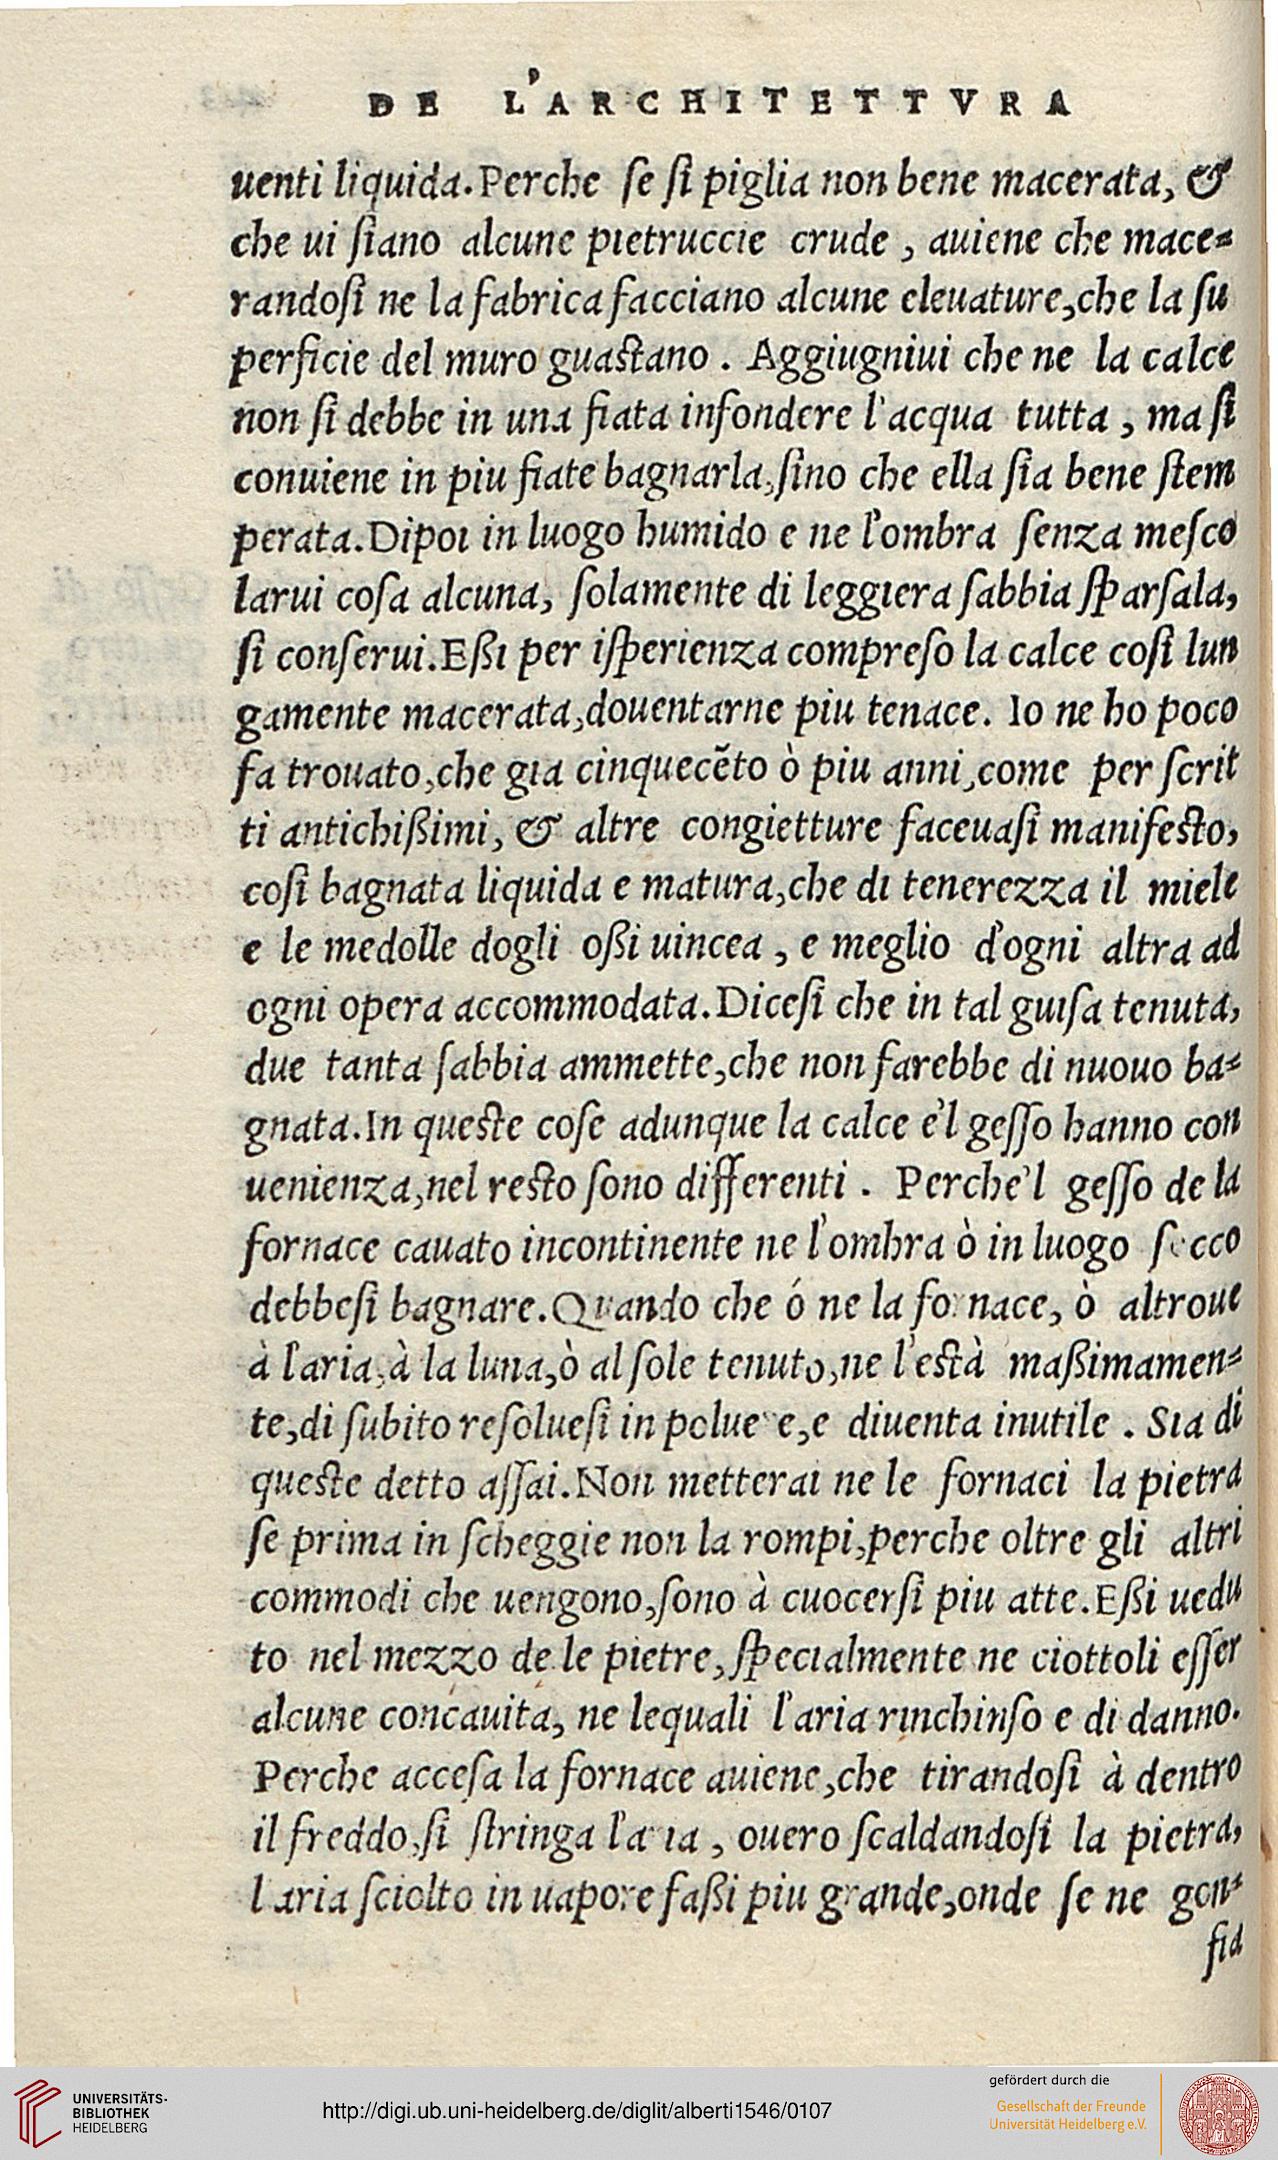 DE L'ARCHITETTVRA
uenti liquida. Perche ſe ſi piglia non bene macerata, &
che ui ſiano alcune pietruccie crude , auiene che mace=
randoſi ne la fabrica facciano alcune eleuature, che la ſu
perficie del muro guaſtano . Aggiugniui che ne la calce
non ſi debbe in una fiata infondere l'acqua tutta , ma ſi
conuiene in piu fiate bagnarla, ſino che ella ſia bene ſtem
perata. Dipoi in luogo humido e ne l'ombra ſenza meſco
larui coſa alcuna, ſolamente di leggiera ſabbia ſparſala,
ſi conſerui. Eßi per iſperienza compreſo la calce coſi lun
gamente macerata, douentarne piu tenace. Io ne ho poco
fa trouato, che gia cinquecẽto ò piu anni, come per ſcrit
ti antichißimi, & altre congietture faceuaſi manifeſto,
coſi bagnata liquida e matura, che di tenerezza il miele
e le medolle dogli oßi uincea , e meglio d'ogni altra ad
ogni opera accommodata. Diceſi che in tal guiſa tenuta,
due tanta ſabbia ammette, che non farebbe di nuouo ba=
gnata. In queſte coſe adunque la calce e'l geſſo hanno con
uenienza, nel reſto ſono differenti . Perche'l geſſo de la
fornace cauato incontinente ne l'ombra ò in luogo ſecco
debbeſi bagnare. Quando che ó ne la fornace, ò altroue
à l'aria, à la luna, ò al ſole tenuto, ne l'eſtà maßimamen=
te, di ſubito reſolueſi in poluere, e diuenta inutile . Sia di
queſte detto aſſai. Non metterai ne le fornaci la pietra
ſe prima in ſcheggie non la rompi, perche oltre gli altri
commodi che uengono, ſono à cuocerſi piu atte. Eßi uedu
to nel mezzo de le pietre, ſpecialmente ne ciottoli eſſer
alcune concauita, ne lequali l'aria rinchinſo e di danno.
Perche acceſa la fornace auiene, che tirandoſi à dentro
il freddo, ſi ſtringa l'aria , ouero ſcaldandoſi la pietra,
l'aria ſciolto in uapore faßi piu grande, onde ſe ne gon=
fia
UNIVERSITÄTS-
BIBLIOTHEK
HEIDELBERG
http://digi.ub.uni-heidelberg.de/diglit/alberti1546/0107
gefördert durch die
Gesellschaft der Freunde
Universität Heidelberg e.V.